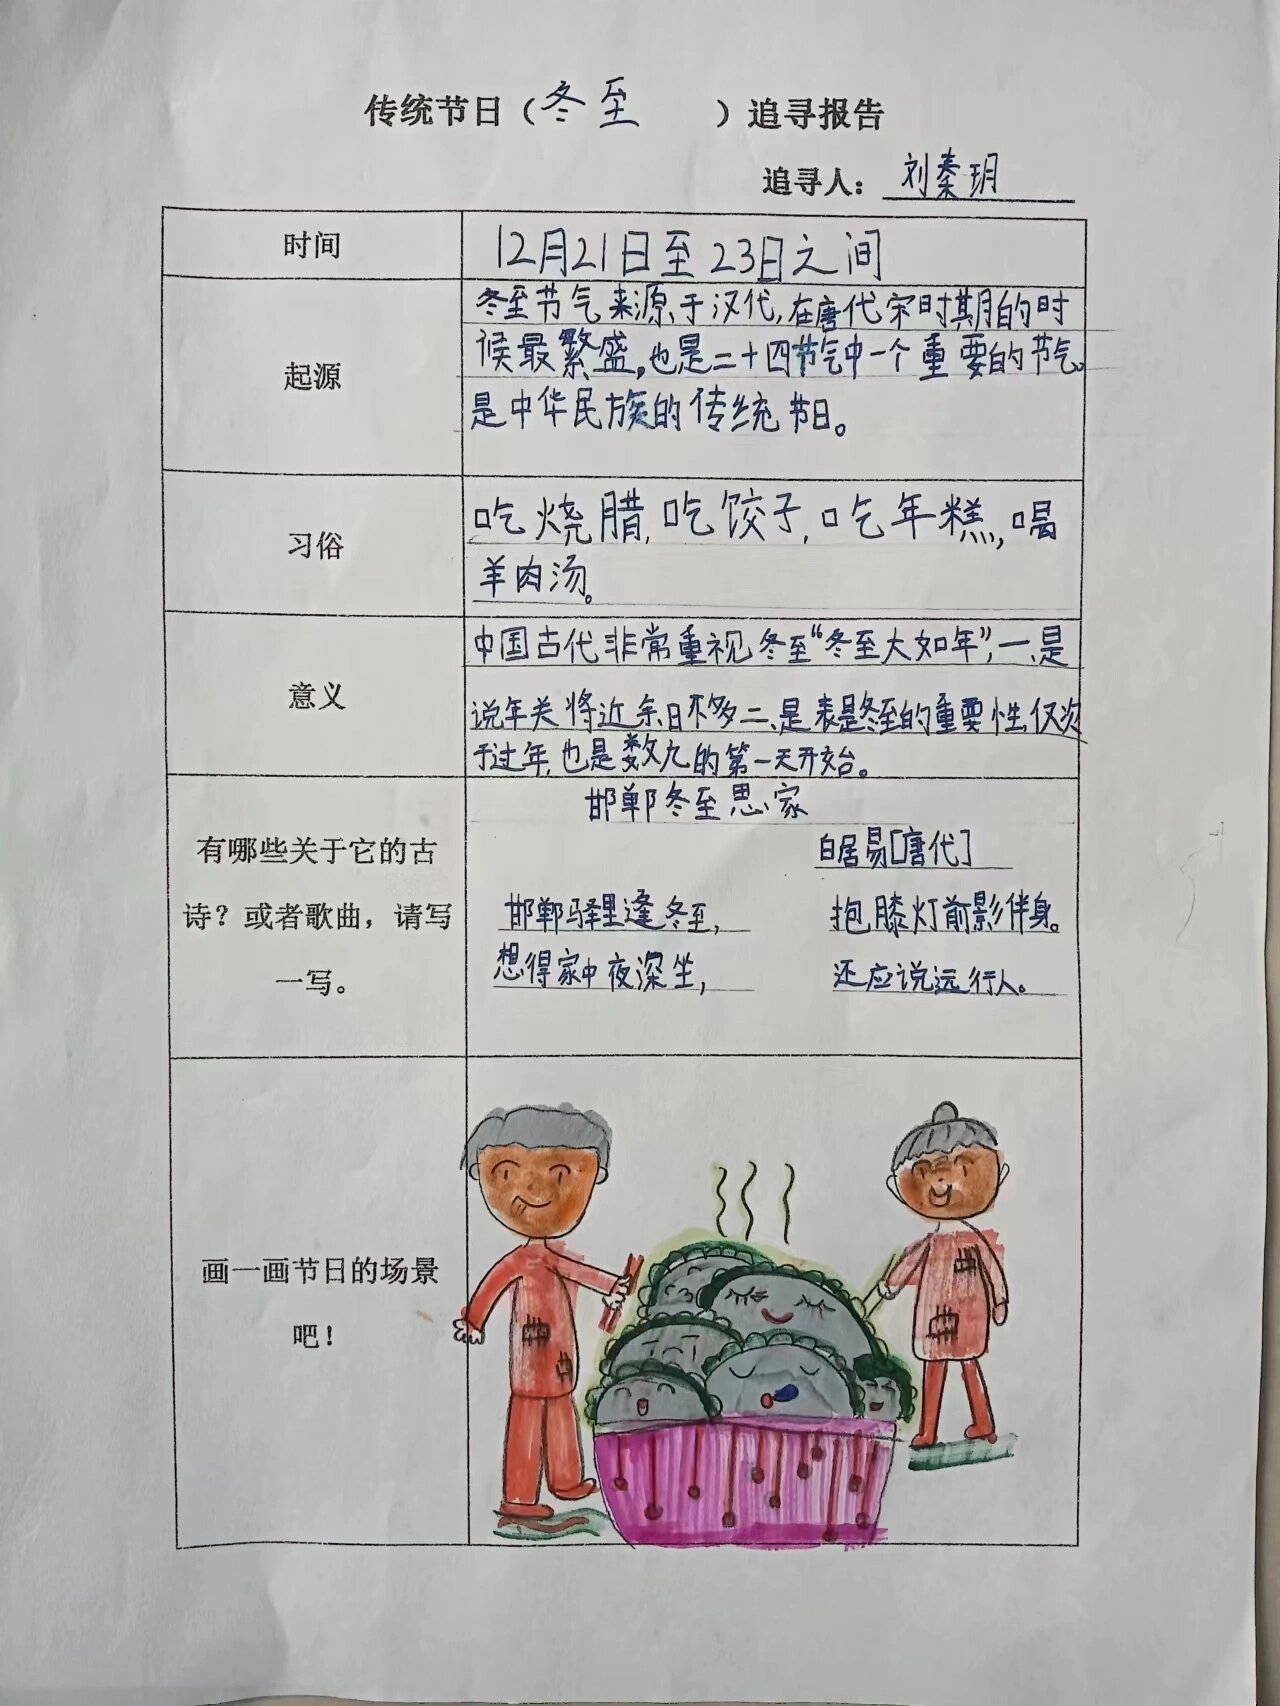 传统节日（冬至）追寻报告
追寻人：刘秦玥
时间
12月21日至23日之间
起源
冬至节气来源于汉代,在唐代宋时期的时
候最繁盛,也是二十四节气中一个重要的节气。
是中华民族的传统节日。
习俗
吃烧腊,吃饺子,吃年糕,喝
羊肉汤。
意义
中国古代非常重视冬至“冬至大如年”,一、是
说年关将近余日不多二、是表是冬至的重要性,仅次
于过年,也是数九的第一天开始。
有哪些关于它的古
诗？或者歌曲，请写
一写。
邯郸冬至思家
白居易[唐代]
邯郸驿里逢冬至, 抱膝灯前影伴身。
想得家中夜深坐, 还应说远行人。
画一画节日的场景
吧！